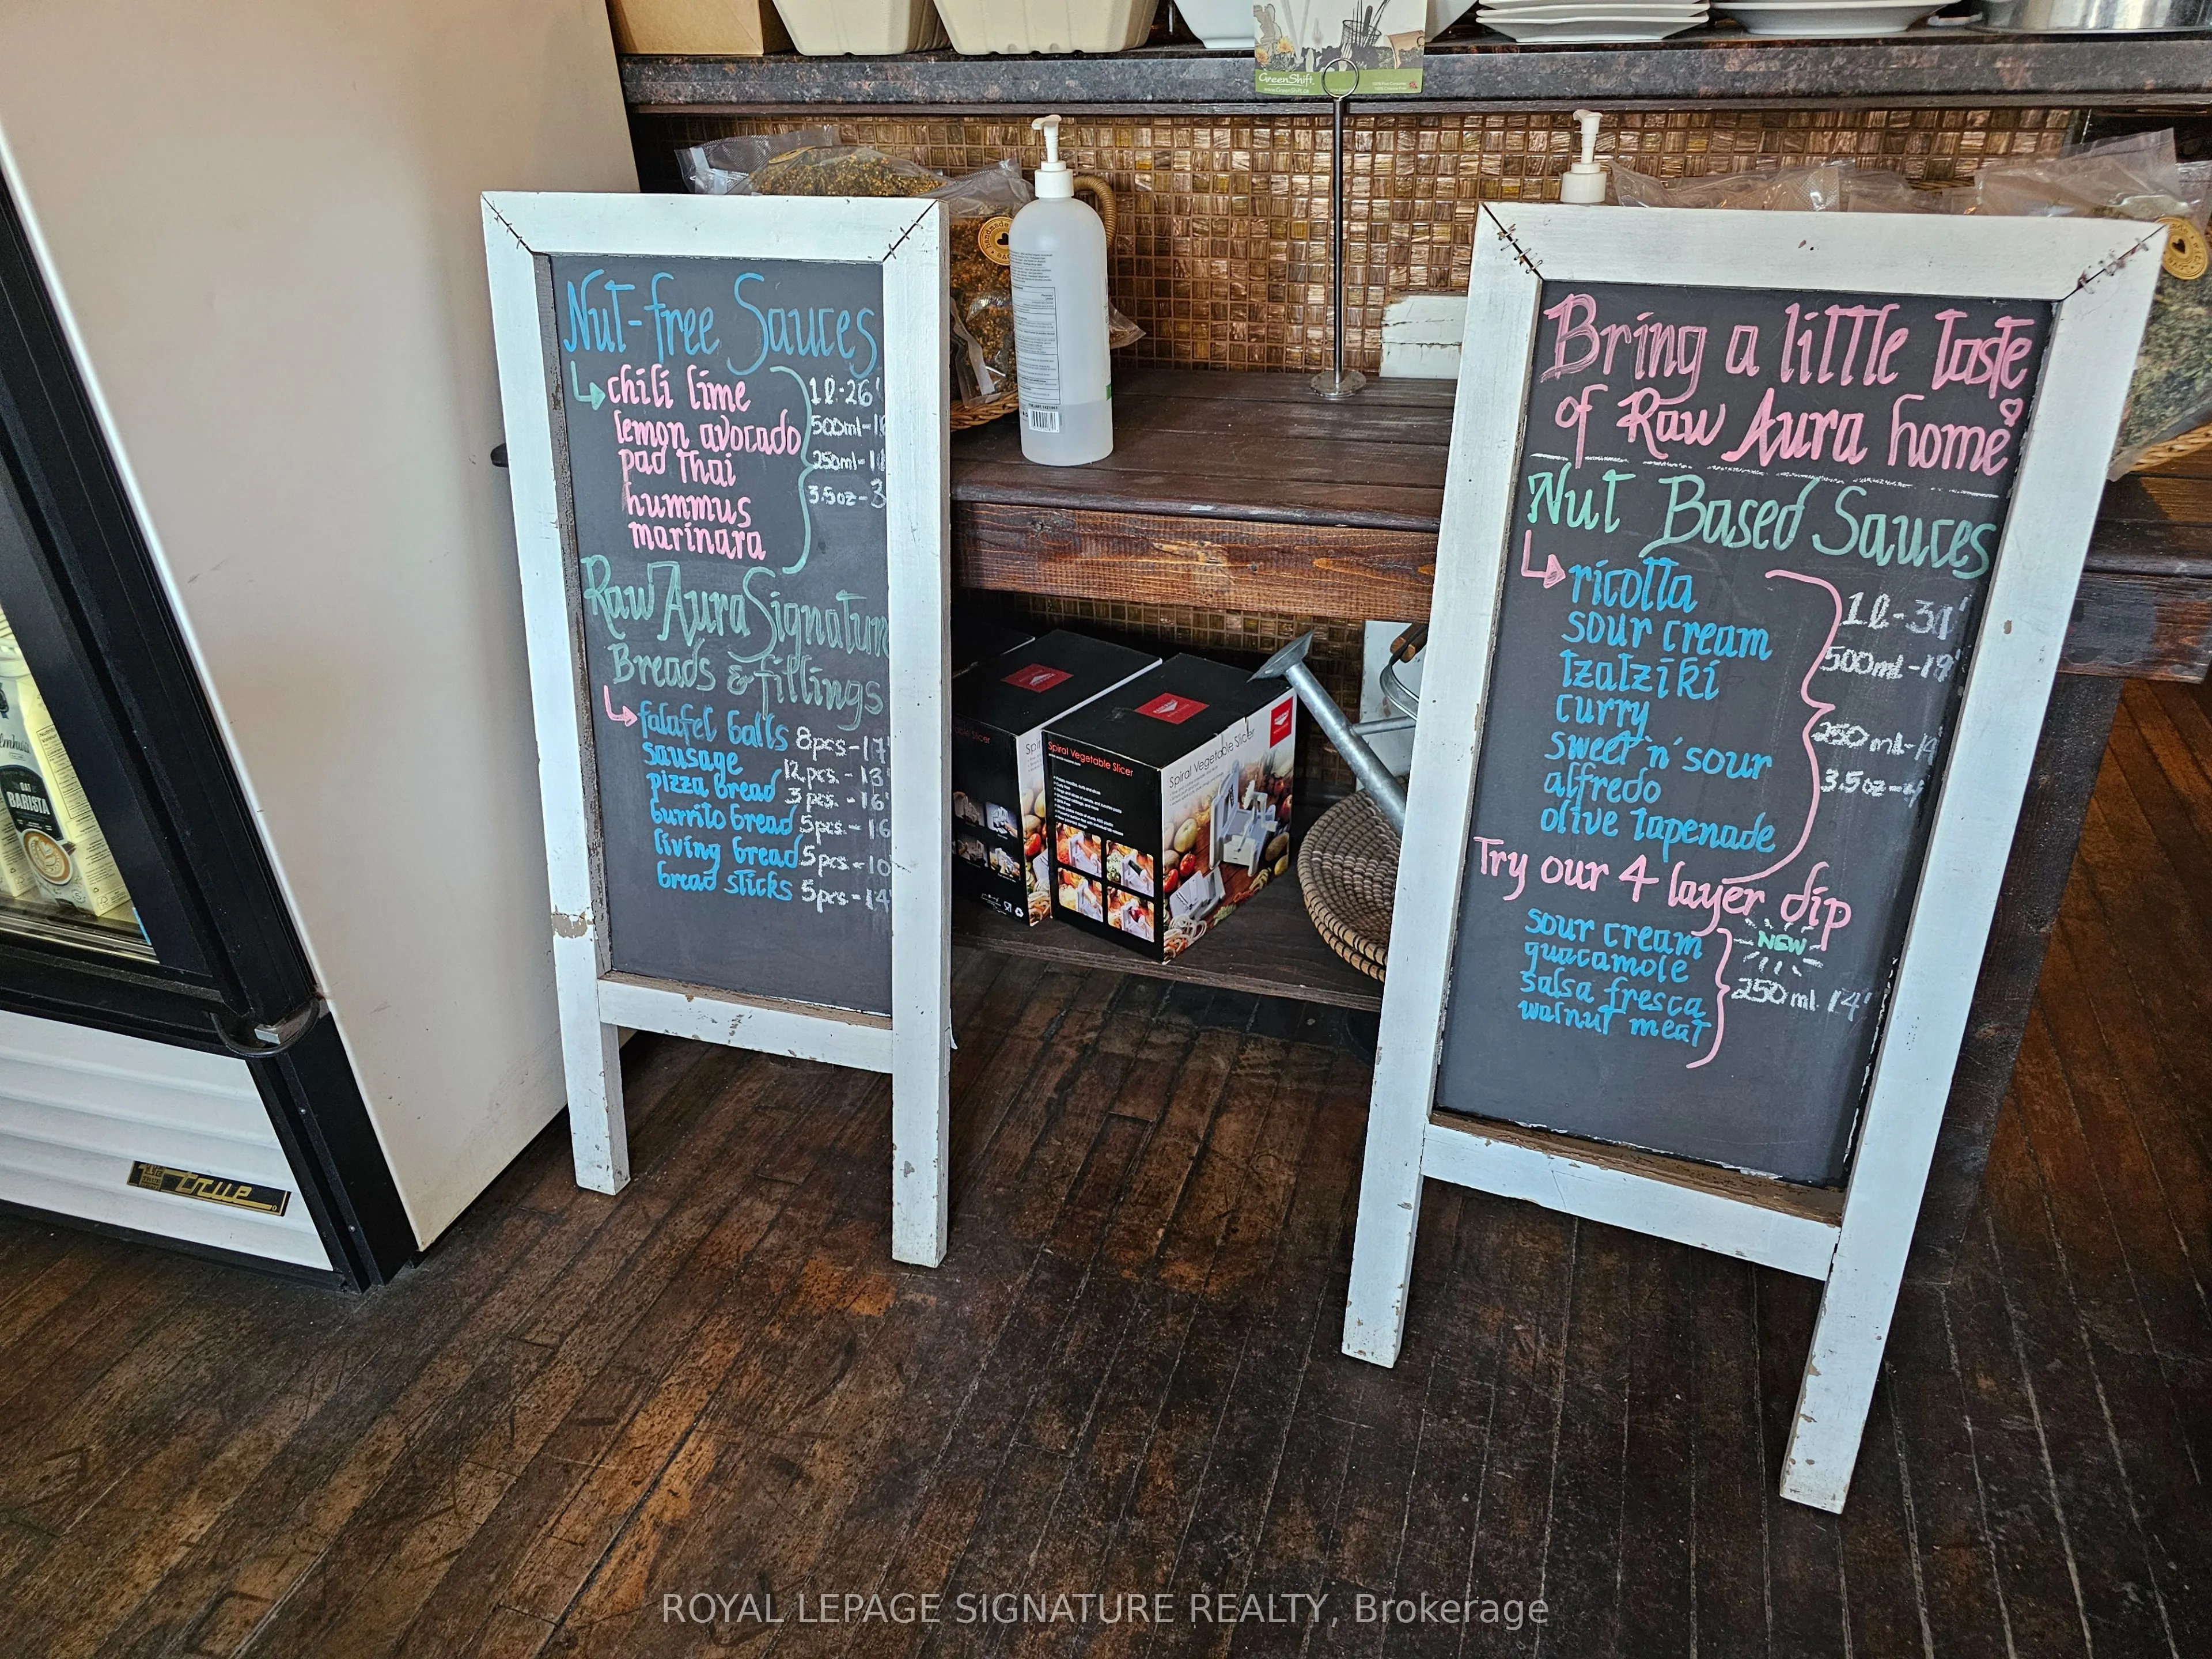 GreenShift
www.GreenShift.ca
Nut-free Sauces
chili lime
lemon avocado
pad Thai
hummus
marinara
1l-26
500ml-
250ml-
3.5oz-3
Raw Aura Signature
Breads & fillings
falafel balls 8pcs-17
sausage 12pcs-13
pizza bread 3pcs.-16
burrito bread 5pcs-16
living bread 5pcs-10
bread sticks 5pcs-14
Bring a little taste
of Raw Aura home
Nut Based Sauces
ricotta
sour cream
tzatziki
curry
sweet 'n' sour
alfredo
olive tapenade
1l-
500ml-19
250ml-
3.5oz-
Try our 4 layer dip
NEW
sour cream
guacamole
salsa fresca
walnut meat
250ml 14
Spiral Vegetable Slicer
Spiral Vegetable Slicer
BARISTA
true
ROYAL LEPAGE SIGNATURE REALTY, Brokerage